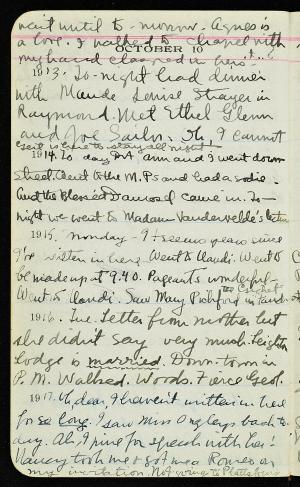 wait until to-morrow. Agnes is
a love. I walked to chapel with
OCTOBER 10
my hand clasped in hers!
1913. To-night had dinner
with Maude Denise Strayer in
Raymond. Met Ethel Glenn
and Joe Sailor. Oh, I cannot
1914. To day and I went down
street. Went to the M.P's and had a soda.
And the Blessed Damosel came in. To-
night we went to Madame Vandervelde's
1915. Monday - It seems years since
I've written in here. Went to Claudi. Went to
be made up at 9.40. Pageants wonderful -
Went to Claudi. Saw Mary Pickford in
1916. Tue. Letter from mother but
she didn't say very much. Leighton
Lodge is married. Down-town in
P. M. Walked. Woods. Fierce Geol.
1917. Oh, dear, I haven't written in here
for so long. I saw Miss back to-
day. Ah, I pine for speech with her!
Nancy took me & got me on
my invitation. Not going to Plattsburg